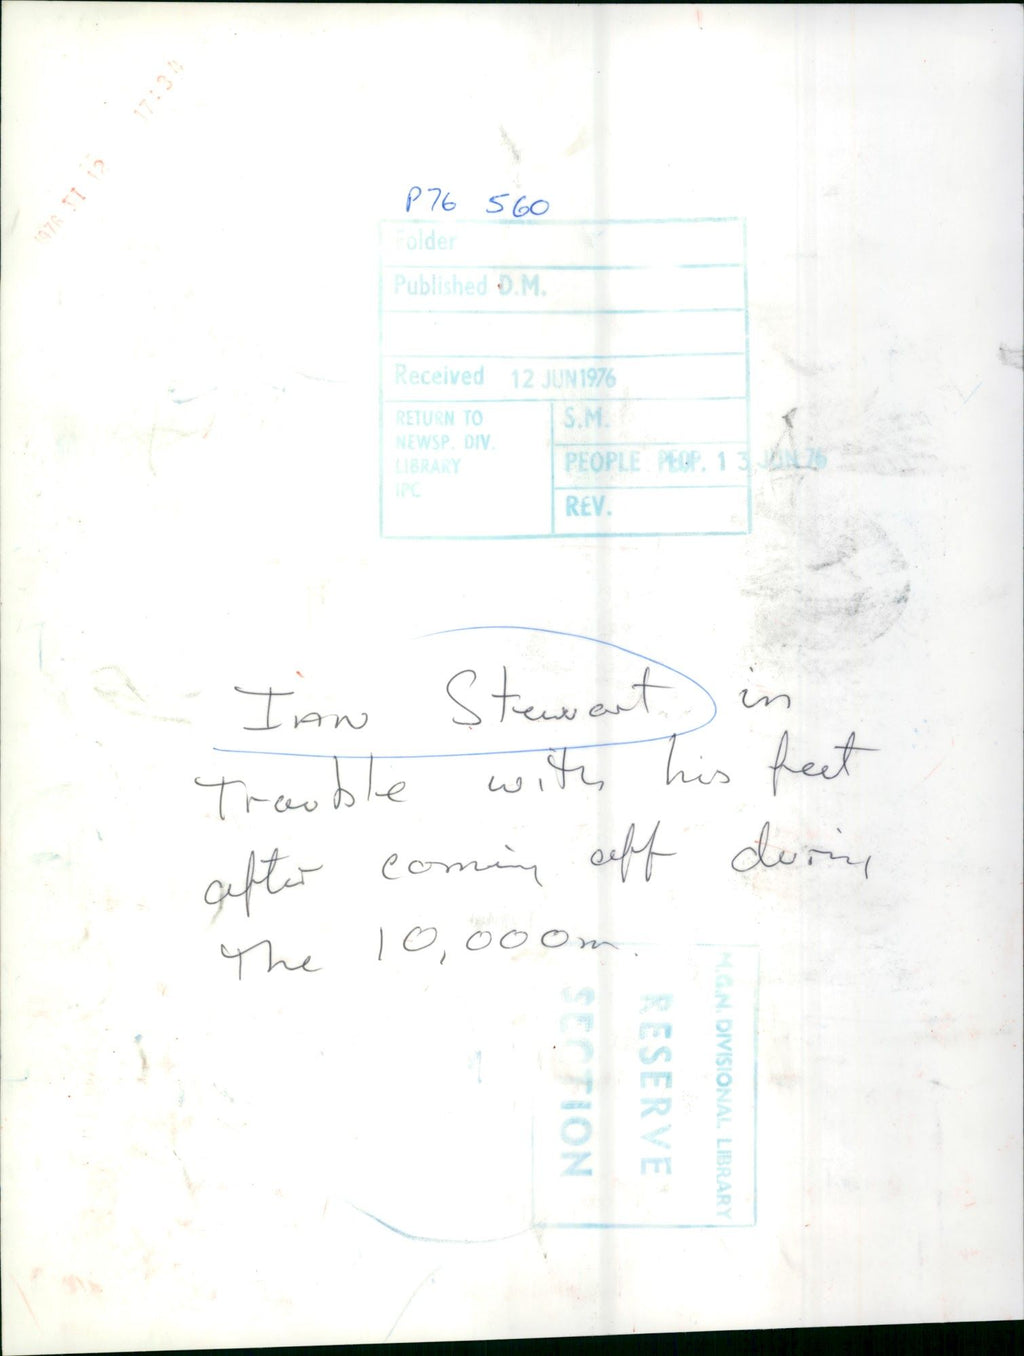 1976 VI 12 17:34
P76 560
Folder
Published D.M.
Received 12 JUN 1976
RETURN TO
NEWSP. DIV.
LIBRARY
IPC
S.M.
PEOPLE PEOP. 13 JUN 76
REV.
Ian Stewart in
trouble with his feet
after coming off during
the 10,000m.
M.G.N. DIVISIONAL LIBRARY
RESERVE
SECTION